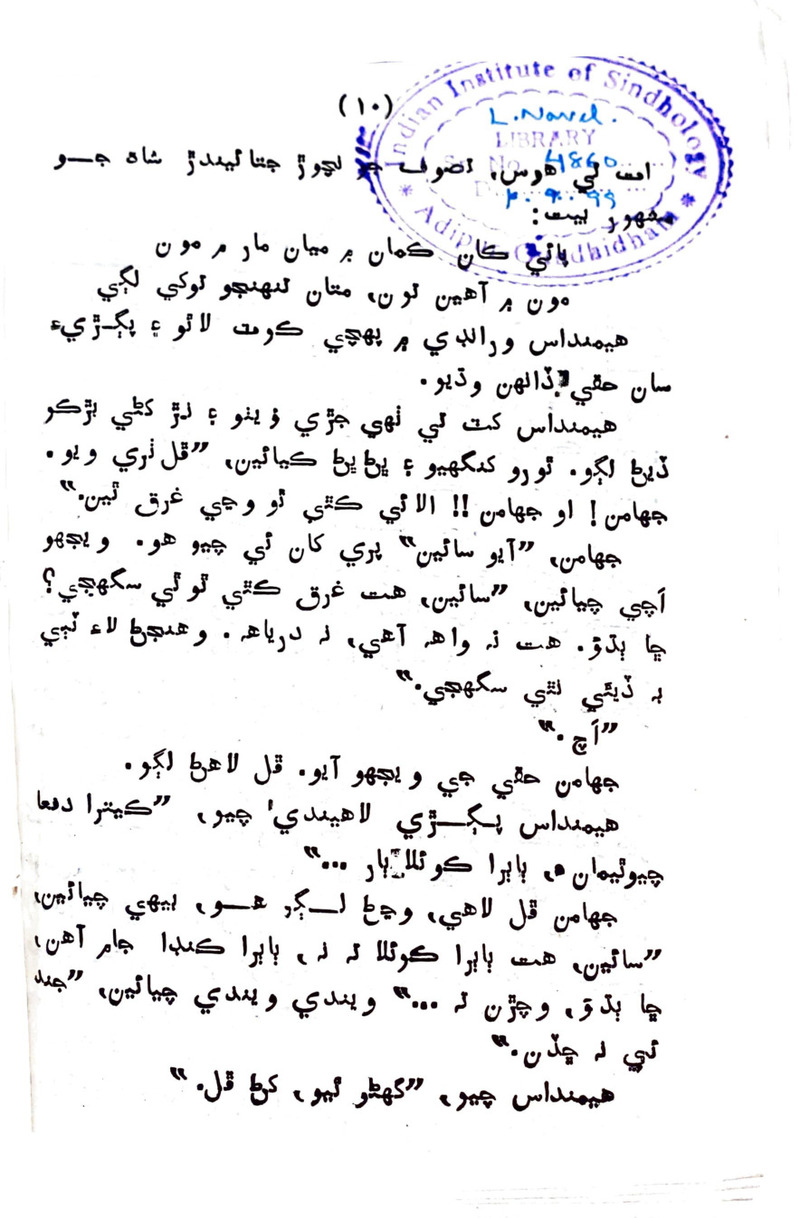 (۱۰)
Indian Institute of Sindhology
L. Novel.
LIBRARY
Sr. No. 4860
Adipur
انت ئي هوس، تصوف جو نچوڙ جتائيندڙ شاهه جــو
مشهور بيت:
پائي ڪان ڪمان ۾ ميان مار ۾ مون
مون ۾ آهين تون، متان تنهنجو توکي لڳي
هيمنداس ورانڊي ۾ پهچي ڪوٽ لاٿو ۽ پڳــڙيءَ
سان حقي ڏانهن وڌيو.
هيمنداس کٽ تي ٺهي جڙي ويٺو ۽ نڙ کڻي بڙڪو
ڏيڻ لڳو. ٿورو کنگهيو ۽ ڀڻ ڀڻ ڪيائين، ”ڦل ٺري ويو.
جهامن! او جهامن!! الائي ڪٿي ٿو وڃي غرق ٿين.“
جهامن، ”آيو سائين“ پري کان ئي چيو هو. ويجهو
اَچي چيائين، ”سائين، هت غرق ڪٿي ٿو ٿي سگهجي؟
ڇا ٻڌؤ. هت نہ واهہ آهي، نہ درياهہ. وهنجڻ لاءِ ٽٻي
بہ ڏيئي نٿي سگهجي.“
”اَڇ.“
جهامن حقي جي ويجهو آيو. ڦل لاهڻ لڳو.
هيمنداس پــڳــــڙي لاهيندي چيو، ”ڪيترا دفعا
چيوٿيمان ۽، ٻاٻرا ڪوئلا ٻار ...“
جهامن ڦل لاهي، وڃڻ لــڳو هــو، بيهي چيائين،
”سائين، هت ٻاٻرا ڪوئلا تہ نہ، ٻاٻرا ڪنڊا جام آهن،
ڇا ٻڌؤ، وڇڙن تہ ...“ ويندي ويندي چيائين، ”جند
ئي نہ ڇڏن.“
هيمنداس چيو، ”گهڻو ٿيو، کڻ ڦل.“